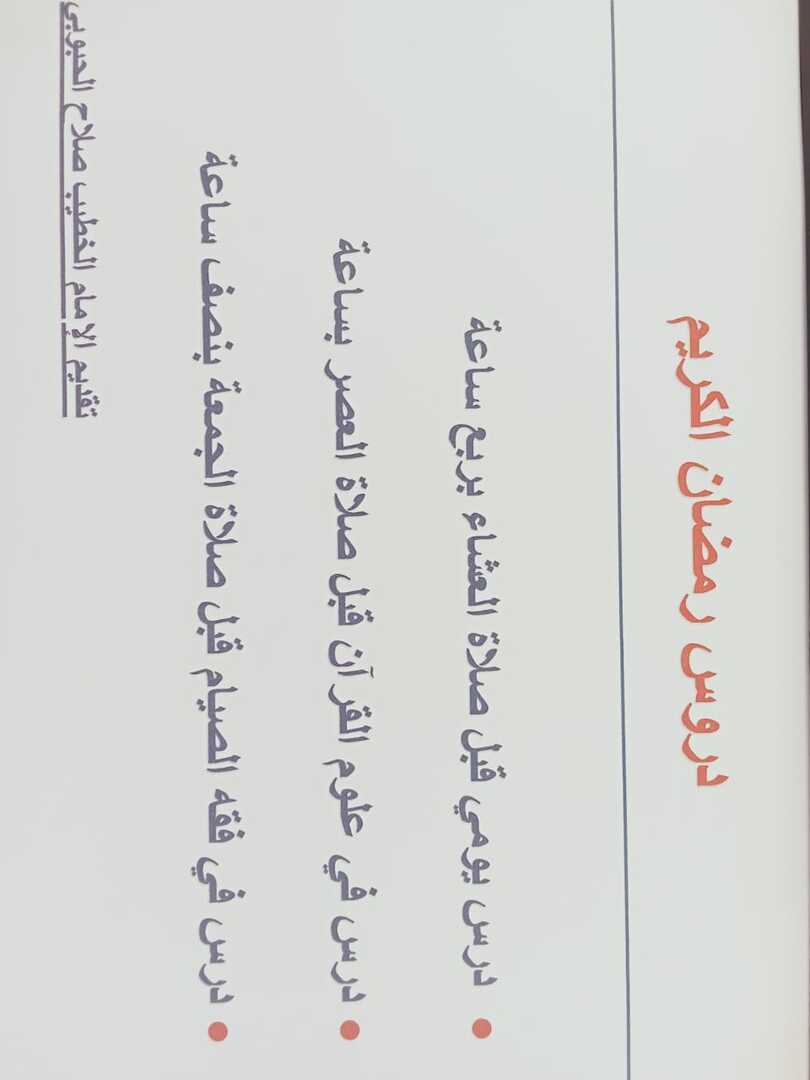 دروس رمضان الكريم
درس يومي قبل صلاة العشاء بربع ساعة
درس في علوم القرآن قبل صلاة العصر بساعة
درس في فقه الصيام قبل صلاة الجمعة بنصف ساعة
تقديم الإمام الخطيب صلاح الحبوبي